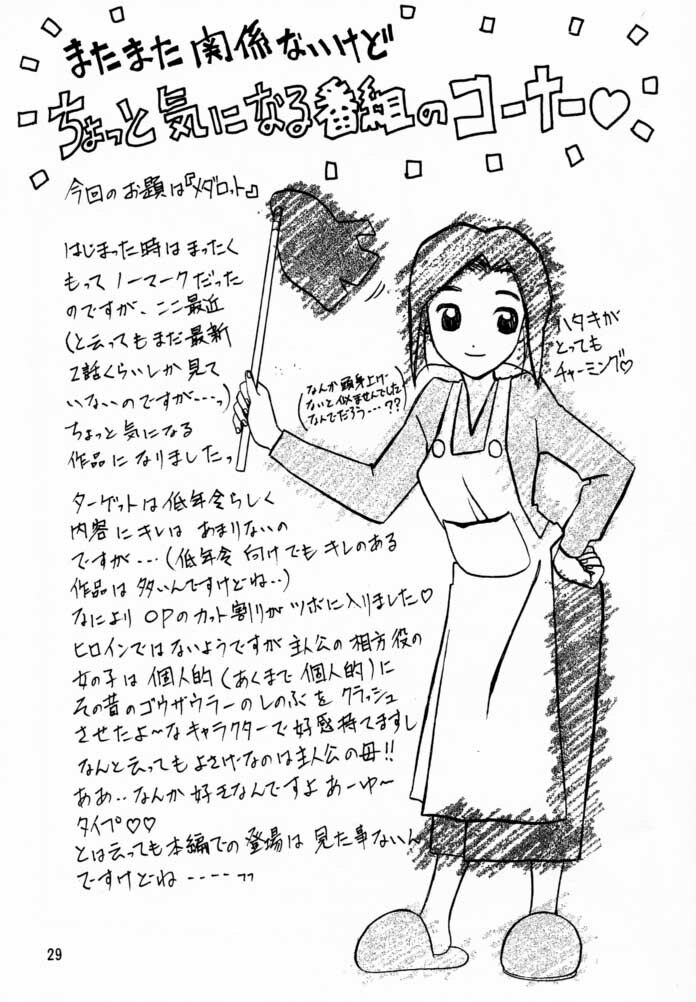 またまた関係ないけど
ちょっと気になる番組のコーナー♡
今回のお題は『メダロット』
はじまった時はまったく
もってノーマークだった
のですが、ここ最近
(と云ってもまだ最新
2話くらいしか見て
いないのですが---っ)
ちょっと気になる
作品になりましたっ
ターゲットは低年令らしく
内容にキレはあまりないの
ですが---(低年令向けでもキレのある
作品は多いんですけどね‥)
なによりOPのカット割りがツボに入りました♡
ヒロインではないようですが主人公の相方役の
女の子は個人的(あくまで個人的)に
その昔のゴウザウラーのしのぶをクラッシュ
させたよ～なキャラクターで好感持てますし
なんと云ってもよさげーなのは主人公の母!!
ああ‥なんか好きなんですよあーゆ～
タイプ♡♡
とは云っても本編での登場は見た事ないん
ですけどね----
(なんか頭身上げ-
ないと似ませんでした
なんでだろう---??)
ハタキが
とっても
チャーミング♡
29